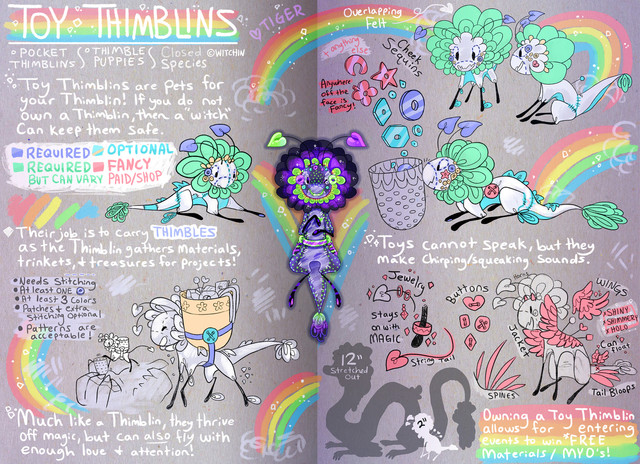 TOY THIMBLINS
TIGER
○ POCKET THIMBLINS
○ THIMBLE PUPPIES
Closed Species
©WITCHIN
Toy Thimblins are Pets for
your Thimblin! If you do not
own a Thimblin, then a "witch"
Can keep them safe.
REQUIRED
OPTIONAL
REQUIRED BUT CAN VARY
FANCY PAID/SHOP
Their job is to carry THIMBLES
as the Thimblin gathers Materials,
trinkets, & treasures for projects!
Needs Stitching
At least ONE
At least 3 Colors
Patches + extra
Stitching Optional
Patterns are
acceptable!
Much like a Thimblin, they thrive
off magic, but can also fly with
enough love & attention!
Overlapping
Felt
Cheek
Sequins
anything
else
Anywhere
off the
face is
Fancy!
Toys cannot speak, but they
make Chirping/squeaking Sounds.
Jewelry
stays
on with
MAGIC
String Tail
Buttons
Horns
WINGS
SHINY
SHIMMERY
HOLO
Jacket
Can float
SPINES
Tail Bloops
12"
Stretched
Out
2"
Owning a Toy Thimblin
allows for entering
events to win FREE
Materials/MYO's!